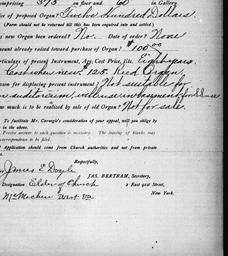 mprising 375 on floor and 60 in Gallery
ice of proposed Organ? Twelve Hundred Dollars.
(Form should not be returned till this has been inquired into and settled.)
new Organ been Ordered? No. Date of order? None
ount already raised toward purchase of Organ? $100.00
rticulars of present Instrument, Age, Cost Price, Etc. Eight years.
Cost when new 125. Reed Organ.
ason for displacing present instrument? Not suitable for
auditorium; will use in basement for S.
w much is to be realized by sale of old Organ? Not for sale.
To facilitate Mr. Carnegie's consideration of your appeal, will you oblige by
Precise answer to each question is necessary. The leaving of blanks may
correspondence to be filed.
Application should come from Church authorities and not from private
Respectfully,
JAS. BERTRAM, Secretary,
2 East 91st Street,
New York.
James E Doyle
Designation Elder of Church
McMechen West Va